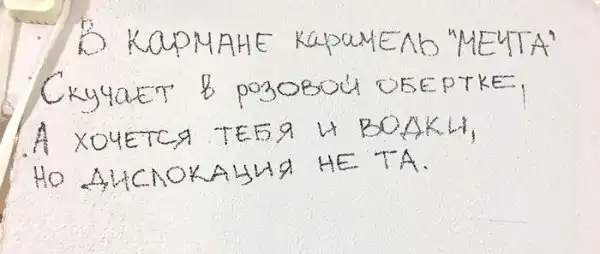 В КАРМАНЕ КАРАМЕЛЬ "МЕЧТА"
Скучает в розовой обертке,
А хочется тебя и водки,
Но дислокация не та.